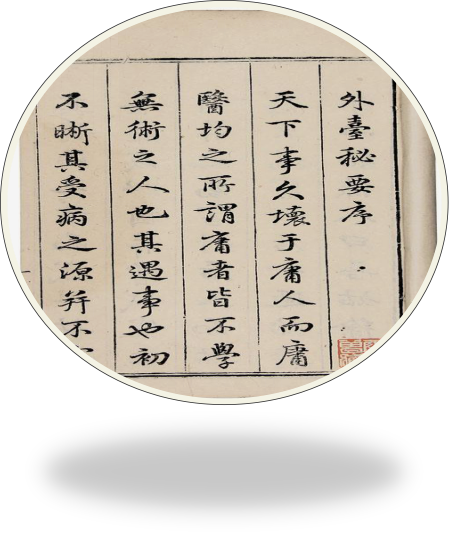 外臺秘要序
天下事久壞于庸人而庸
醫均之所謂庸者皆不學
無術之人也其遇事也初
不晰其受病之源并不